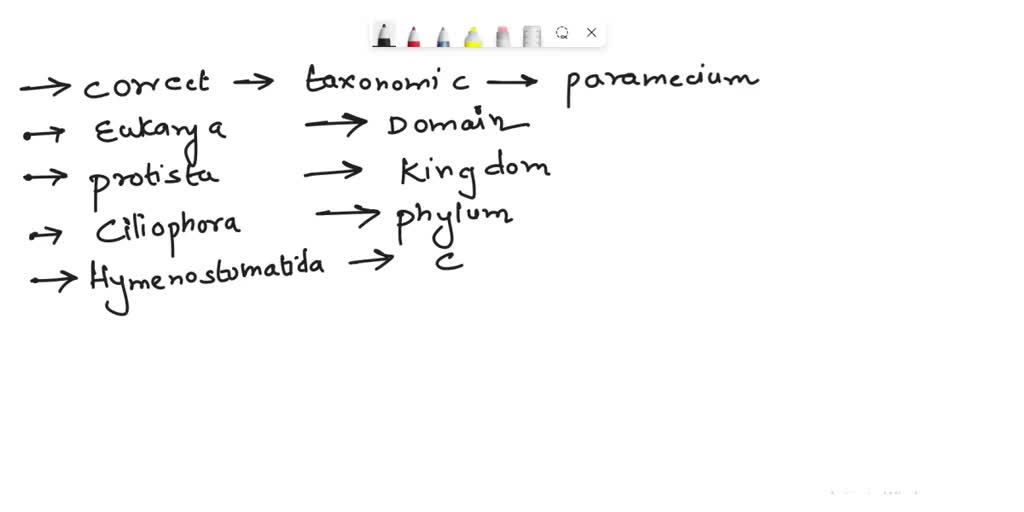 → correct → taxonomic → paramecium
→ Eukarya → Domain
→ protista → Kingdom
→ Ciliophora → phylum
→ Hymenostomatida → C